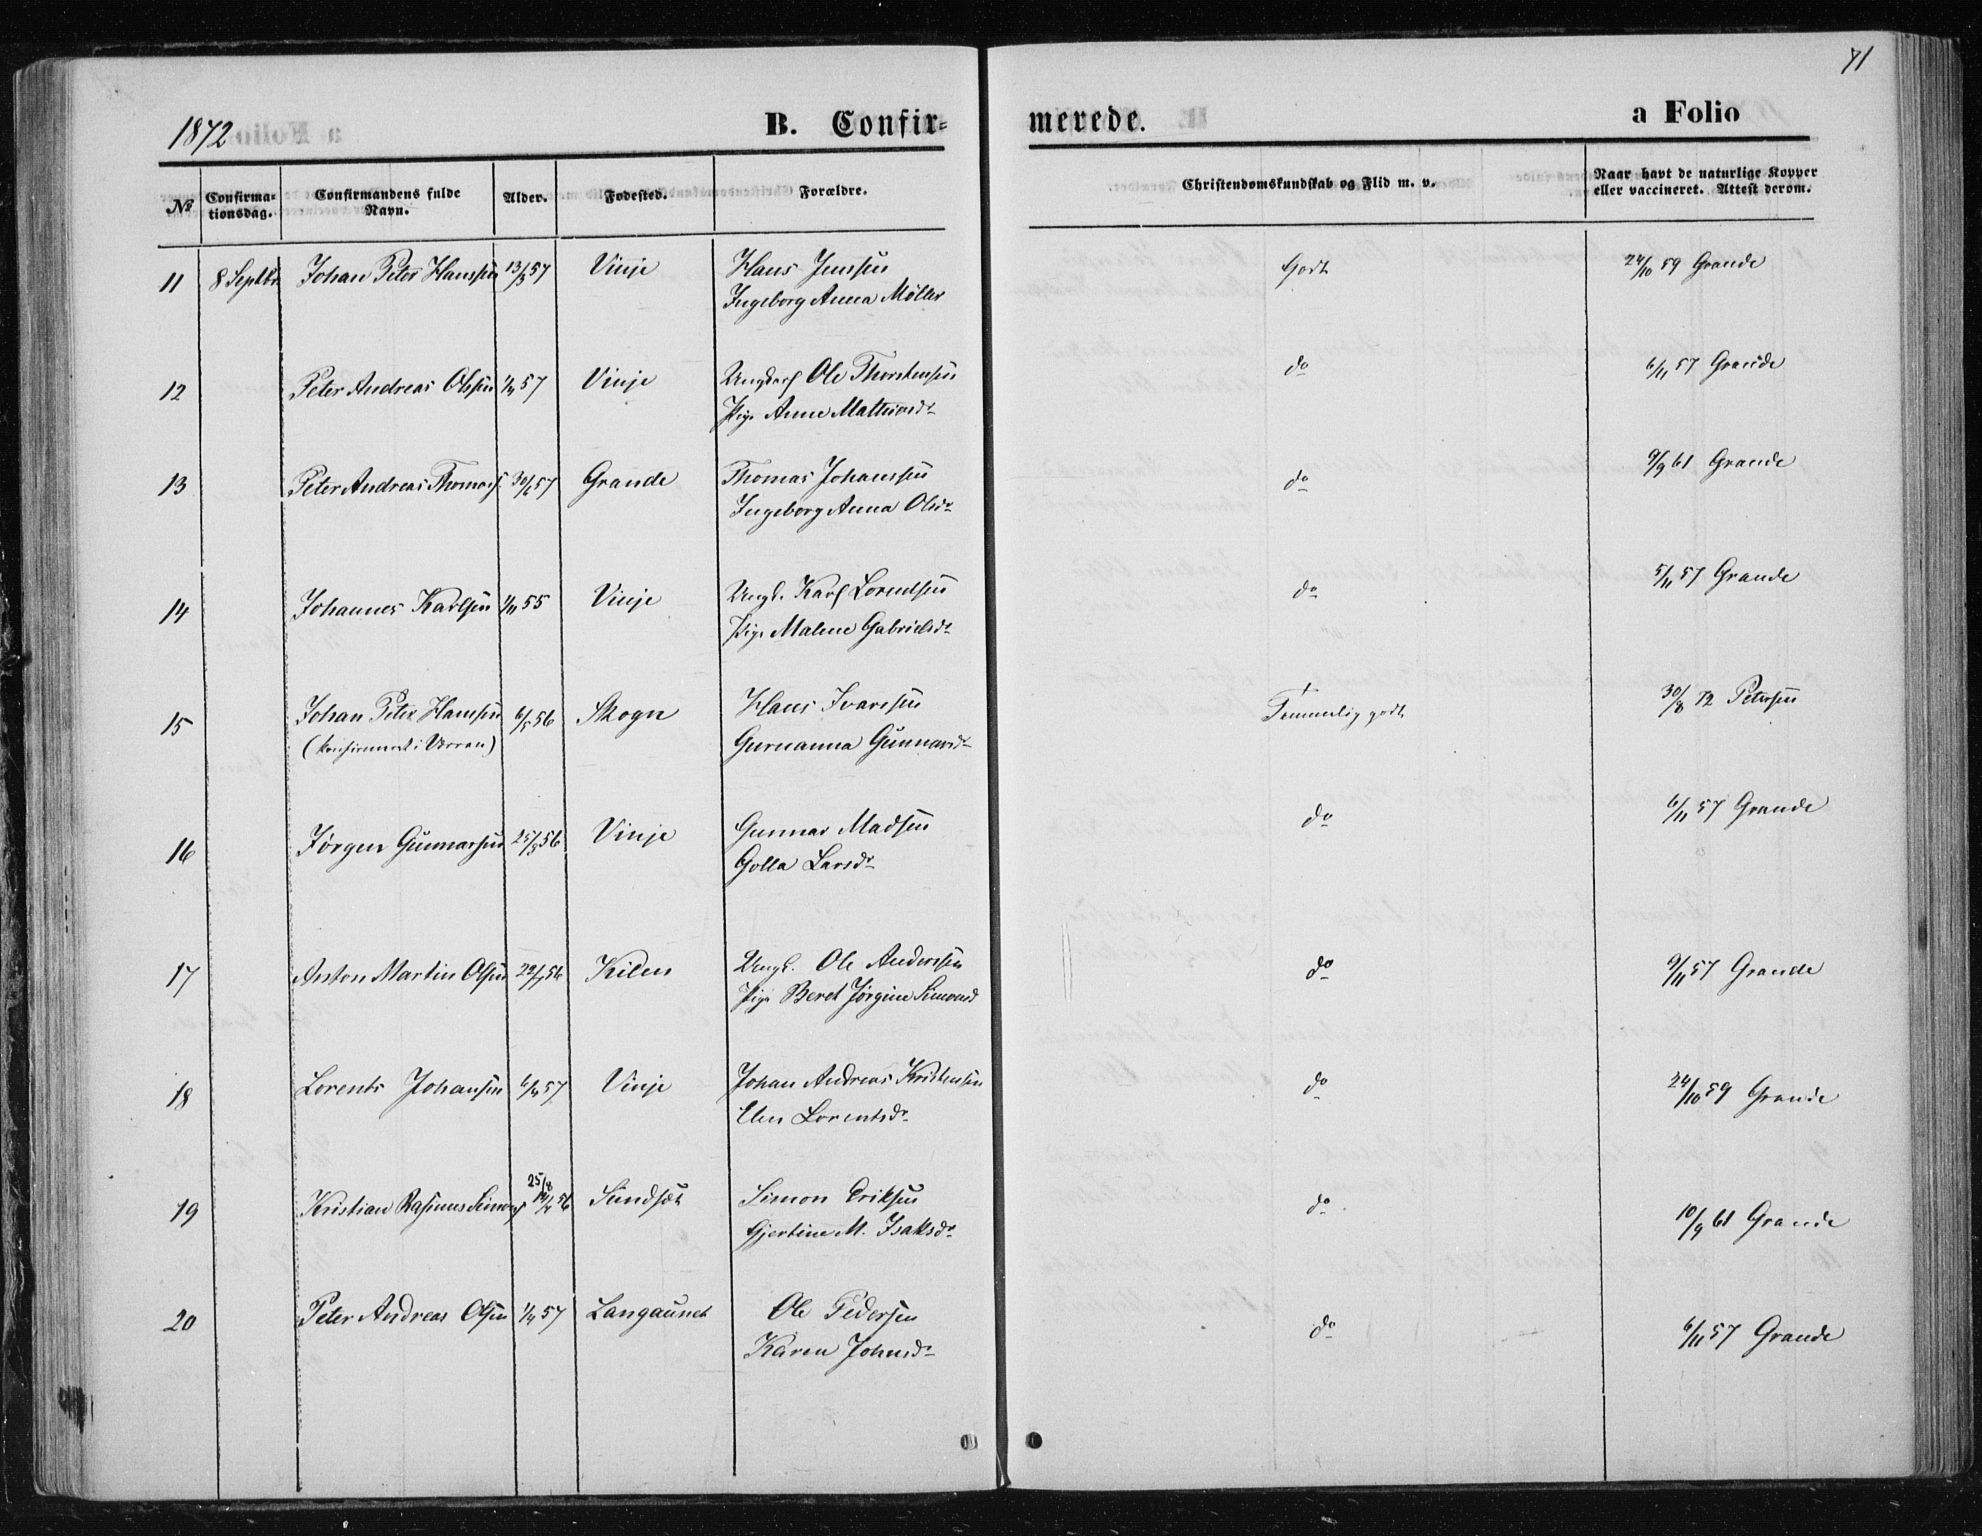 71
1872 B. Confir- merede. a Folio
No Confirma-tionsdag. Confirmandens fulde Navn. Alder. Fødested. Forældre. Christendomskundskab og Flid m. v. Naar havt de naturlige Kopper eller vaccineret. Attest derom.
11 8 Septbr. Johan Peter Hanssen 13/5 57 Vinje Hans Jenssen Godt 24/10 59 Grande
Ingeborg Anna Møller
12 Peter Andreas Olssen 57 Vinje Ungkarl Ole Thorstensen do 6/11 57 Grande
Pige Anne Mathisdr
13 Peter Andreas Thomass. 30/6 57 Grande Thomas Johanssen do 9/9 61 Grande
Ingeborg Anna Olsdr
14 Johannes Karlsen 1/11 55 Vinje Ungk. Karl Lorentsen do 5/11 57 Grande
Pige Malene Gabrielsdr
15 Johan Peter Hanssen 6/5 56 Skogn Hans Ivarssen Temmelig godt 30/8 72 Peterssen
(konfirmeret i Verran) Gurnanna Gunnarsdr
16 Jørgen Gunnarssen 25/5 56 Vinje Gunnar Madssen do 6/11 57 Grande
Golla Larsdr
17 Anton Martin Olsen 56 Kilen Ungk. Ole Anderssen do 9/11 57 Grande
Pige Beret Jørgine Simonsd
18 Lorents Johansen 57 Vinje Johan Andreas Kristensen do 24/10 59 Grande
Elen Lorentsdr
19 Kristian Rasmus Simons 25/8 56 Sundset Simon Eriksen do 10/9 61 Grande
Gjertine M. Isaksdr
20 Peter Andreas Olsen 57 Langaunet Ole Pedersen do 6/11 57 Grande
Karen Johnsdr